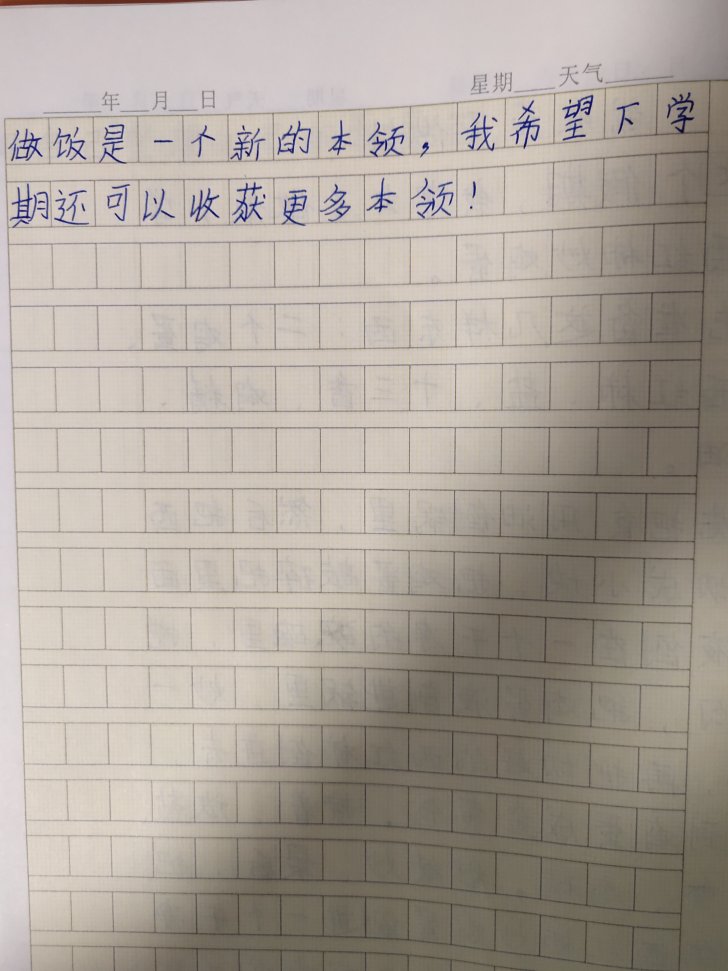 ____年__月__日 星期____天气______
做饭是一个新的本领，我希望下学
期还可以收获更多本领！